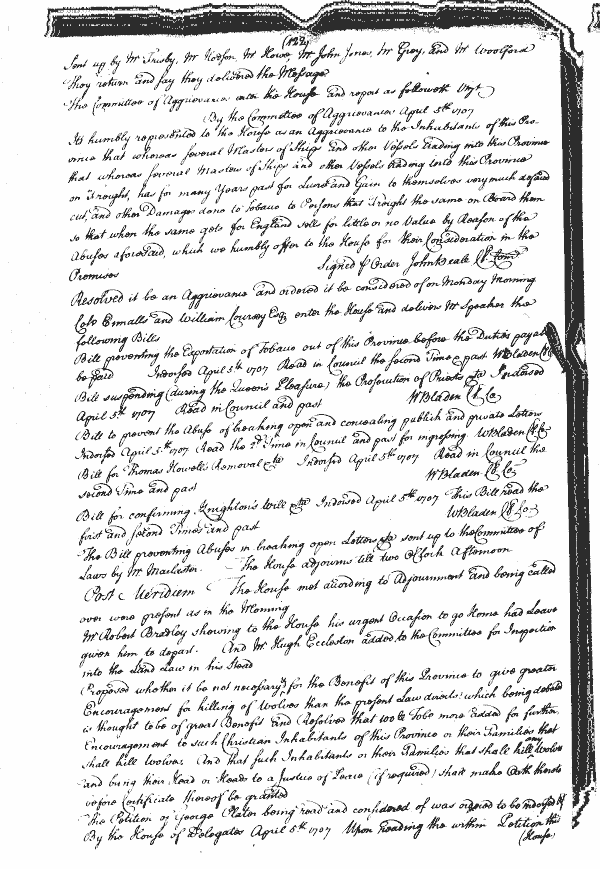 (122)
Sent up by Mr Frisby, Mr Hodson, Mr Howe, Mr John Jones, Mr Grey, and Mr Woolford
They return and say they delivered the Message
The Committee of Aggrievances enter the House and report as followeth Vizt
By the Committee of Aggrievances April 5th 1707
Its humbly represented to the House as an Aggrievance to the Inhabitants of this Pro-
vince that whereas several Masters of Ships and other Vessels trading into this Province
that whereas several Masters of Ships and other Vessels trading into this Province
on Freight, has for many Years past for Lucre and Gain to themselves very much
cut, and other Damages done to Tobacco to Persons that Freight the same on Board them
so that when the same gets for England sells for little or no Value by Reason of the
Abuses aforesaid, which we humbly offer to the House for their Consideration in the
Premises Signed p Order John Beale Cl Com
Resolved it be an Aggrievance and ordered it be considered of on Monday Morning
Colo Ennalls and William Coursey Esqr enter the House and deliver Mr Speaker the
following Bills
Bill preventing the Exportation of Tobacco out of this Province before the Duties payable
be paid Indorsed April 5th 1707 Read in Council the second Time & past WBladen Cl Co
Bill suspending (during the Queen's Pleasure) the Prosecution of Priests &ca Indorsed
April 5th 1707 Read in Council and past WBladen Cl Co
Bill to prevent the Abuse of breaking open and concealing publick and private Letters
Indorsed April 5th 1707 Read the 2d Time in Council and past for ingrossing WBladen Cl Co
Bill for Thomas Howell's Removal &ca Indorsed April 5th 1707 Read in Council the
second Time and past WBladen Cl Co
Bill for confirming Knighton's Will &ca Indorsed April 5th 1707 This Bill read the
first and second Times and past WBladen Cl Co
The Bill preventing Abuses in breaking open Letters &ca sent up to the Committee of
Laws by Mr Macclester. The House adjourns till two o'Clock Afternoon
Post Meridiem The House met according to Adjournment and being called
over were present as in the Morning
Mr Robert Bradley shewing to the House his urgent Occasion to go Home had Leave
given him to depart. And Mr Hugh Eccleston added to the Committee for Inspection
into the Land Law in his Stead
Proposed whether it be not necessary for the Benefit of this Province to give greater
Encouragement for killing of Wolves than the present Law directs: which being debated
is thought to be of great Benefit and Resolved that 100 lb Tobo more added for further
Encouragement to such Christian Inhabitants of this Province or their Families that
shall kill Wolves And that such Inhabitants or their Families that shall kill any Wolves
and bring their Head or Heads to a Justice of Peace (if required) shall make Oath thereto
before Certificate thereof be granted
The Petition of George Plater being read and considered of was ordered to be indorsed
By the House of Delegates April 5th 1707 Upon reading the within Petition the
(House)